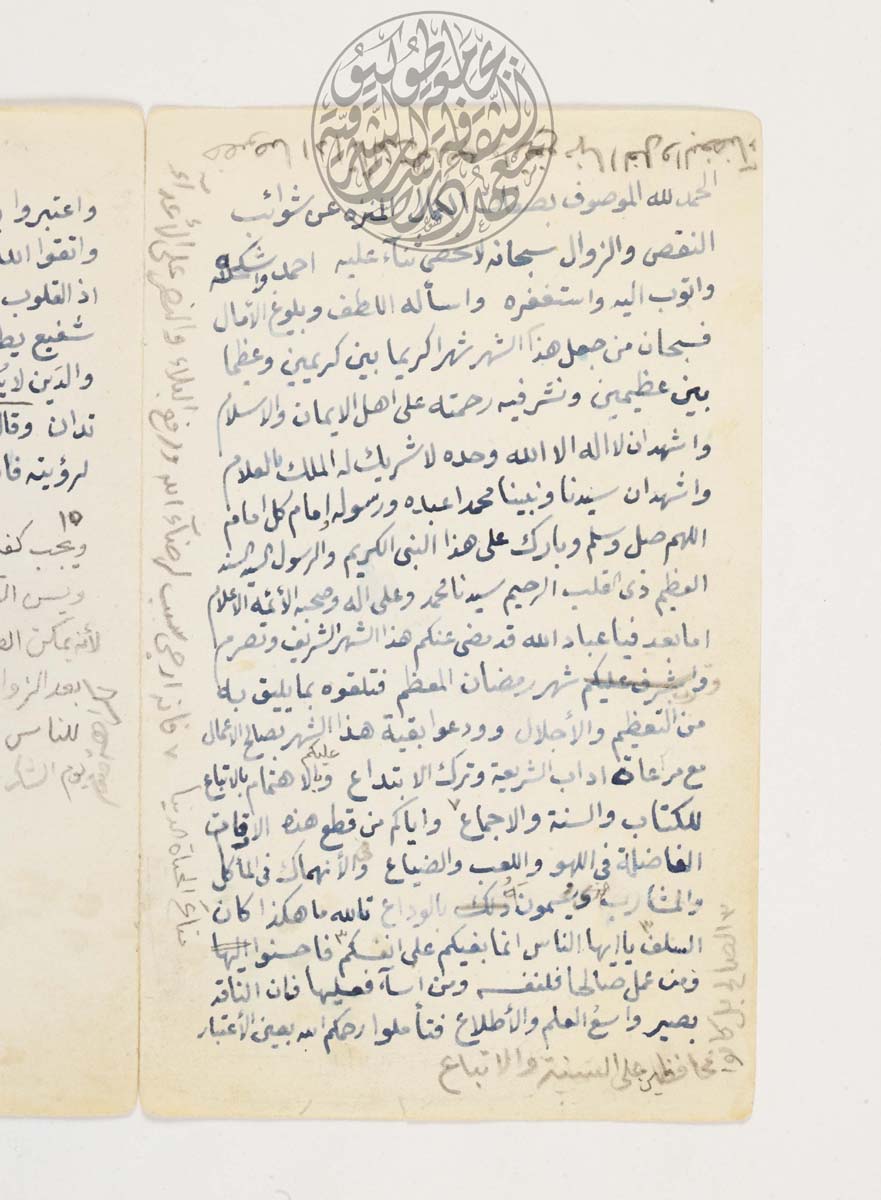 الحمد لله الموصوف بصفات الكمال المنزه عن شوائب
النقص والزوال سبحانه لا نحصي ثناء عليه احمده واشكره
واتوب اليه واستغفره واسأله اللطف وبلوغ الآمال
فسبحان من جعل هذا الشهر شهرا كريما بين كريمين وعظيما
بين عظيمين ونشر فيه رحمته على اهل الايمان والاسلام
واشهد ان لا اله الا الله وحده لا شريك له الملك العلام
واشهد ان سيدنا ونبينا محمدا عبده ورسوله إمام كل امام
اللهم صل وسلم وبارك على هذا النبي الكريم والرسول السيد السند
العظيم ذي القلب الرحيم سيدنا محمد وعلى اله وصحبه الأئمة الاعلام
اما بعد فيا عباد الله قد مضى عنكم هذا الشهر الشريف وتصرم
وقد اشرف عليكم شهر رمضان المعظم فتلقوه بما يليق به
من التعظيم والأجلال وودعوا بقية هذا الشهر بصالح الاعمال
مع مراعاة اداب الشريعة وترك الابتداع وعليكم بالاهتمام بالاتباع
للكتاب والسنة والاجماع ٧ واياكم من قطع هذه الاوقات
الفاضلة في اللهو واللعب والضياع والأنهماك في المآكل
والمشارب ذلك بالوداع تالله ما هكذا كان
السلف ٣ يا ايها الناس انما بغيكم على انفسكم ٣ فاحسنوا اليها
ومن عمل صالحا فلنفسه ومن اسآء فعليها فان الناقد
بصير واسع العلم والأطلاع فتأملوا رحمكم الله بعين الأعتبار
محافظين على السنة والاتباع
٣ الصالح بل كانوا
٧ فانه ارجى سبب لرضآء الله ورفع البلاء والنصر على الأعدآء
متاع الحياة الدنيا
واعتبروا
واتقوا الله
اذ القلوب
شفيع يط
والدين لا
تدان وقال
لرؤيته فان
١٥
ويجب كف
ويسن ال
لأنه يمكن
بعد الزوا
للناس
يوم الشك